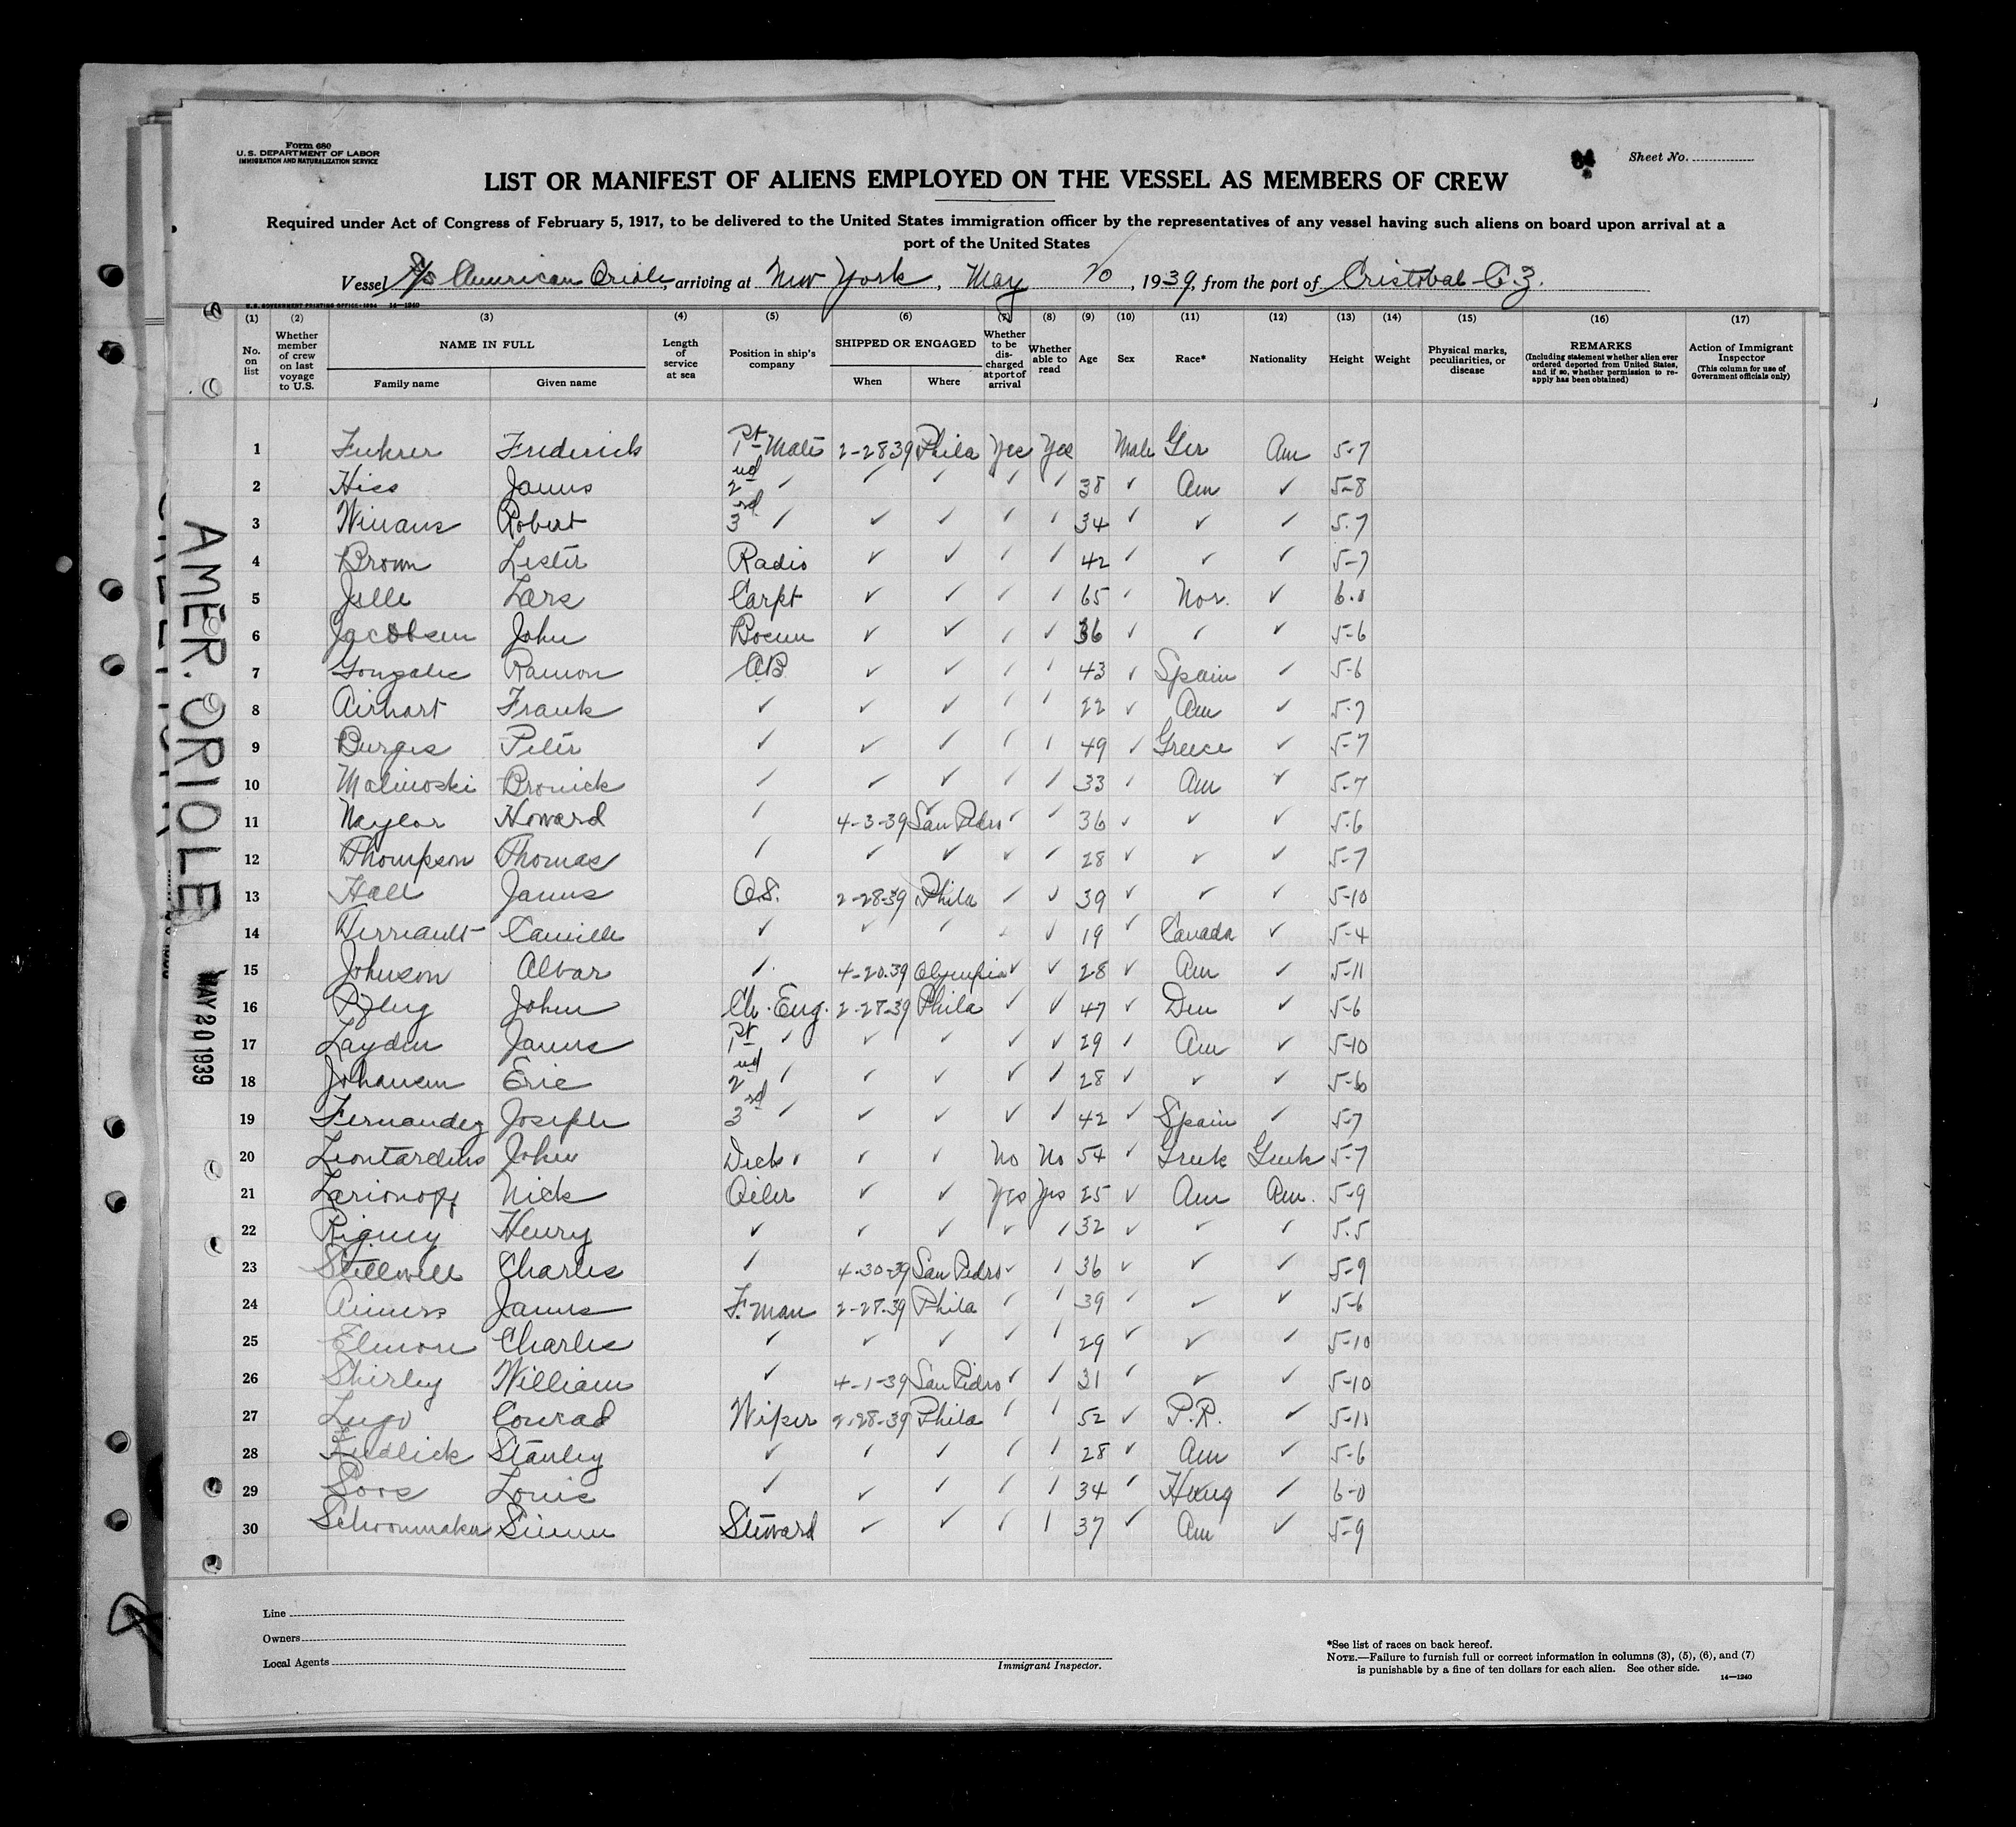 Form 680
U.S. DEPARTMENT OF LABOR
IMMIGRATION AND NATURALIZATION SERVICE
Sheet No.
LIST OR MANIFEST OF ALIENS EMPLOYED ON THE VESSEL AS MEMBERS OF CREW
Required under Act of Congress of February 5, 1917, to be delivered to the United States immigration officer by the representatives of any vessel having such aliens on board upon arrival at a
port of the United States
Vessel S/S American Oriole, arriving at New York, May 20, 1939, from the port of Cristobal C.Z.
U.S. GOVERNMENT PRINTING OFFICE 14-1240
(1) (2) (3) (4) (5) (6) (7) (8) (9) (10) (11) (12) (13) (14) (15) (16) (17)
No. on list
Whether member of crew on last voyage to U.S.
NAME IN FULL
Family name Given name
Length of service at sea
Position in ship's company
SHIPPED OR ENGAGED
When Where
Whether to be discharged at port of arrival
Whether able to read
Age Sex Race* Nationality Height Weight
Physical marks, peculiarities, or disease
REMARKS
(Including statement whether alien ever ordered deported from United States, and if so, whether permission to re-apply has been obtained)
Action of Immigrant Inspector
(This column for use of Government officials only)
1 Fuhrer Frederick 1st Mate 2-28 39 Phila Yes Yes Male Ger Am 5-7
2 Hiss James 2nd ✓ ✓ ✓ ✓ ✓ 38 ✓ Am ✓ 5-8
3 Winans Robert 3rd ✓ ✓ ✓ ✓ ✓ 34 ✓ ✓ ✓ 5-7
4 Brown Lester Radio ✓ ✓ ✓ ✓ 42 ✓ ✓ ✓ 5-7
5 Lars Carpt ✓ ✓ ✓ ✓ 65 ✓ Nor. ✓ 6-0
6 Jacobsen John Bosun ✓ ✓ ✓ ✓ 36 ✓ ✓ ✓ 5-6
7 Gonzalez Ramon AB ✓ ✓ ✓ ✓ 43 ✓ Spain ✓ 5-6
8 Airhart Frank ✓ ✓ ✓ ✓ ✓ 22 ✓ Am ✓ 5-7
9 Burges Peter ✓ ✓ ✓ ✓ ✓ 49 ✓ Greece ✓ 5-7
10 Malinoski Bronick ✓ ✓ ✓ ✓ ✓ 33 ✓ Am ✓ 5-7
11 Naylor Howard ✓ 4-3-39 San Pedro ✓ ✓ 36 ✓ ✓ ✓ 5-6
12 Thompson Thomas ✓ ✓ ✓ ✓ ✓ 28 ✓ ✓ ✓ 5-7
13 Hall James O.S. 2-28-39 Phila ✓ ✓ 39 ✓ ✓ ✓ 5-10
14 Camille ✓ ✓ ✓ ✓ ✓ 19 ✓ Canada ✓ 5-4
15 Johnson Alvar ✓ 4-20-39 Olympia ✓ ✓ 28 ✓ Am ✓ 5-11
16 John Ch. Eng. 2-28-39 Phila ✓ ✓ 47 ✓ Den ✓ 5-6
17 Layden James 1st ✓ ✓ ✓ ✓ ✓ 29 ✓ Am ✓ 5-10
18 Johansen Eric 2nd ✓ ✓ ✓ ✓ ✓ 28 ✓ ✓ ✓ 5-6
19 Fernandez Joseph 3rd ✓ ✓ ✓ ✓ ✓ 42 ✓ Spain ✓ 5-7
20 John Deck ✓ ✓ ✓ No No 54 ✓ Greek Greek 5-7
21 Larionoff Nick Oiler ✓ ✓ Yes Yes 25 ✓ Am Am. 5-9
22 Rigney Henry ✓ ✓ ✓ ✓ ✓ 32 ✓ ✓ ✓ 5-5
23 Stillwell Charles ✓ 4-30-39 San Pedro ✓ ✓ 36 ✓ ✓ ✓ 5-9
24 James F. man 2-28-39 Phila ✓ ✓ 39 ✓ ✓ ✓ 5-6
25 Elmore Charles ✓ ✓ ✓ ✓ ✓ 29 ✓ ✓ ✓ 5-10
26 Shirley William ✓ 4-1-39 San Pedro ✓ ✓ 31 ✓ ✓ ✓ 5-10
27 Lugo Conrad Wiper 2-28-39 Phila ✓ ✓ 52 ✓ P.R. ✓ 5-11
28 Stanley ✓ ✓ ✓ ✓ ✓ 28 ✓ Am ✓ 5-6
29 Soos Louis ✓ ✓ ✓ ✓ ✓ 34 ✓ Hung ✓ 6-0
30 Schoonmaker Steward ✓ ✓ ✓ ✓ 37 ✓ Am ✓ 5-9
AMER. ORIOLE
MAY 20 1939
Line
Owners
Local Agents
Immigrant Inspector.
*See list of races on back hereof.
NOTE.—Failure to furnish full or correct information in columns (3), (5), (6), and (7)
is punishable by a fine of ten dollars for each alien. See other side.
14-1240